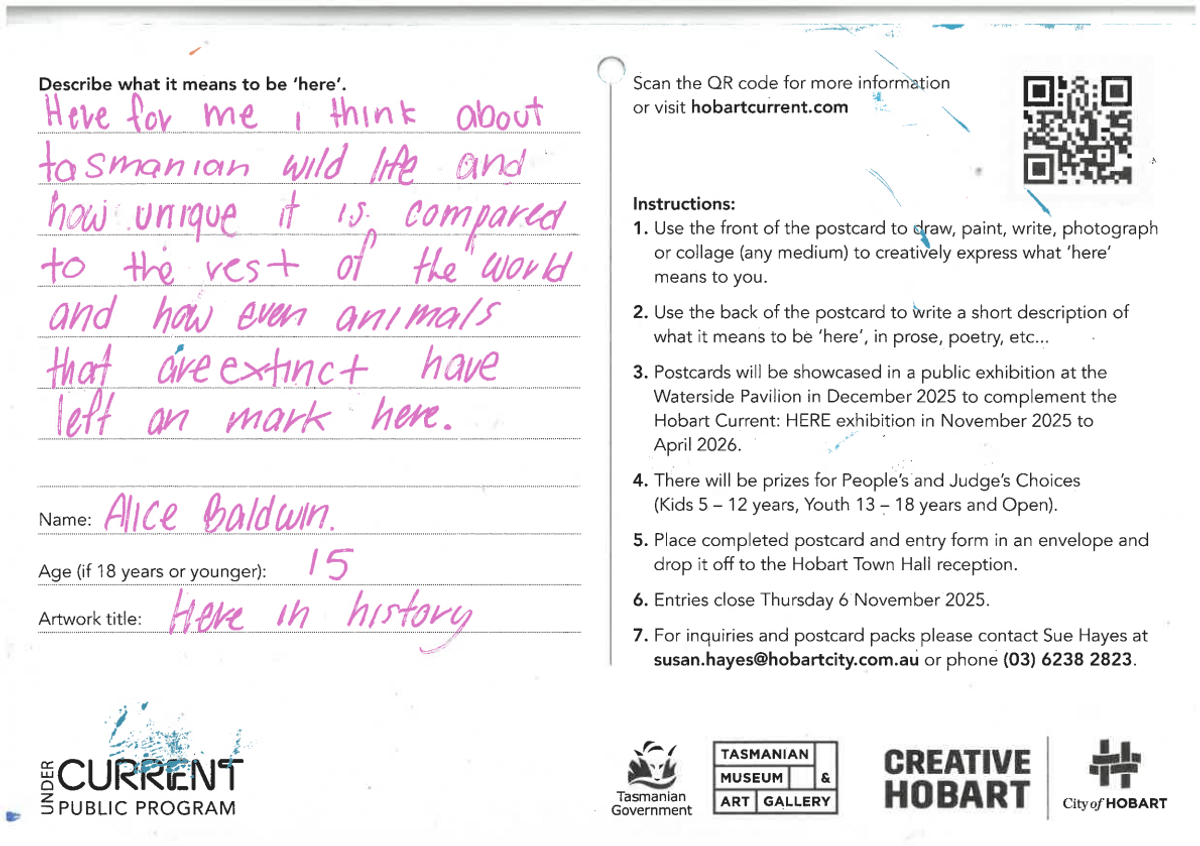 Describe what it means to be ‘here’.
Here for me i think about
tasmanian wild life and
how unique it is compared
to the rest of the world
and how even animals
that are extinct have
left an mark here.
Name: Alice Baldwin.
Age (if 18 years or younger): 15
Artwork title: Here in history
UNDER
CURRENT
PUBLIC PROGRAM
Scan the QR code for more information
or visit hobartcurrent.com
Instructions:
1. Use the front of the postcard to draw, paint, write, photograph
or collage (any medium) to creatively express what ‘here’
means to you.
2. Use the back of the postcard to write a short description of
what it means to be ‘here’, in prose, poetry, etc...
3. Postcards will be showcased in a public exhibition at the
Waterside Pavilion in December 2025 to complement the
Hobart Current: HERE exhibition in November 2025 to
April 2026.
4. There will be prizes for People’s and Judge’s Choices
(Kids 5 – 12 years, Youth 13 – 18 years and Open).
5. Place completed postcard and entry form in an envelope and
drop it off to the Hobart Town Hall reception.
6. Entries close Thursday 6 November 2025.
7. For inquiries and postcard packs please contact Sue Hayes at
susan.hayes@hobartcity.com.au or phone (03) 6238 2823.
Tasmanian
Government
TASMANIAN
MUSEUM &
ART GALLERY
CREATIVE
HOBART
City of HOBART